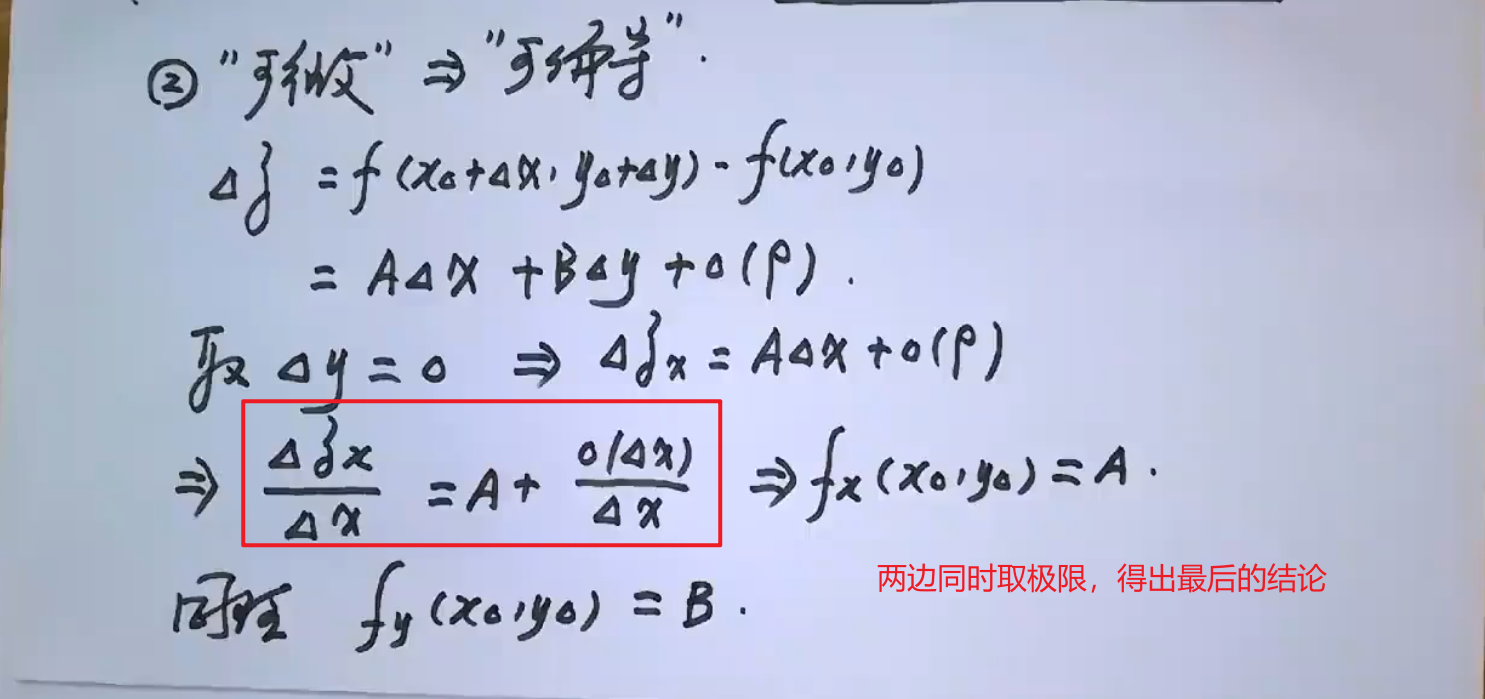 ② "可微" ⇒ "可偏导".
Δz = f(x₀+Δx, y₀+Δy) - f(x₀, y₀)
= AΔx + BΔy + o(ρ).
取 Δy = 0 ⇒ Δzx = AΔx + o(ρ)
⇒ Δzx/Δx = A + o(Δx)/Δx ⇒ fx(x₀, y₀) = A.
两边同时取极限，得出最后的结论
同理 fy(x₀, y₀) = B.